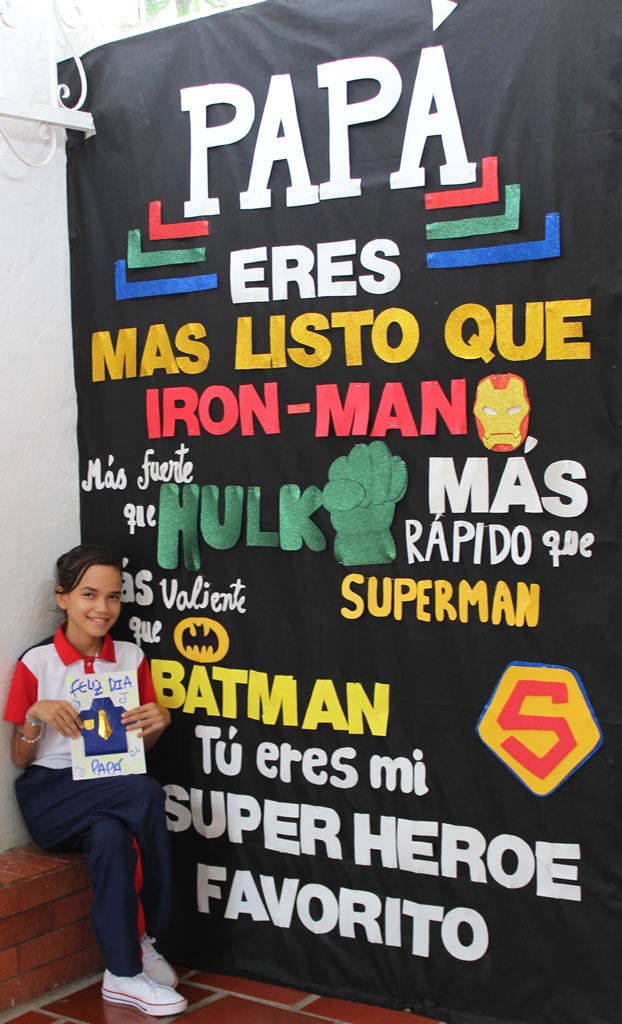 PAPÁ
ERES
MAS LISTO QUE
IRON-MAN,
Más fuerte
que
HULK
MÁS
RÁPIDO que
SUPERMAN
Más valiente
que
BATMAN
S
Tú eres mi
SUPER HEROE
FAVORITO
FELIZ DIA
PAPÁ